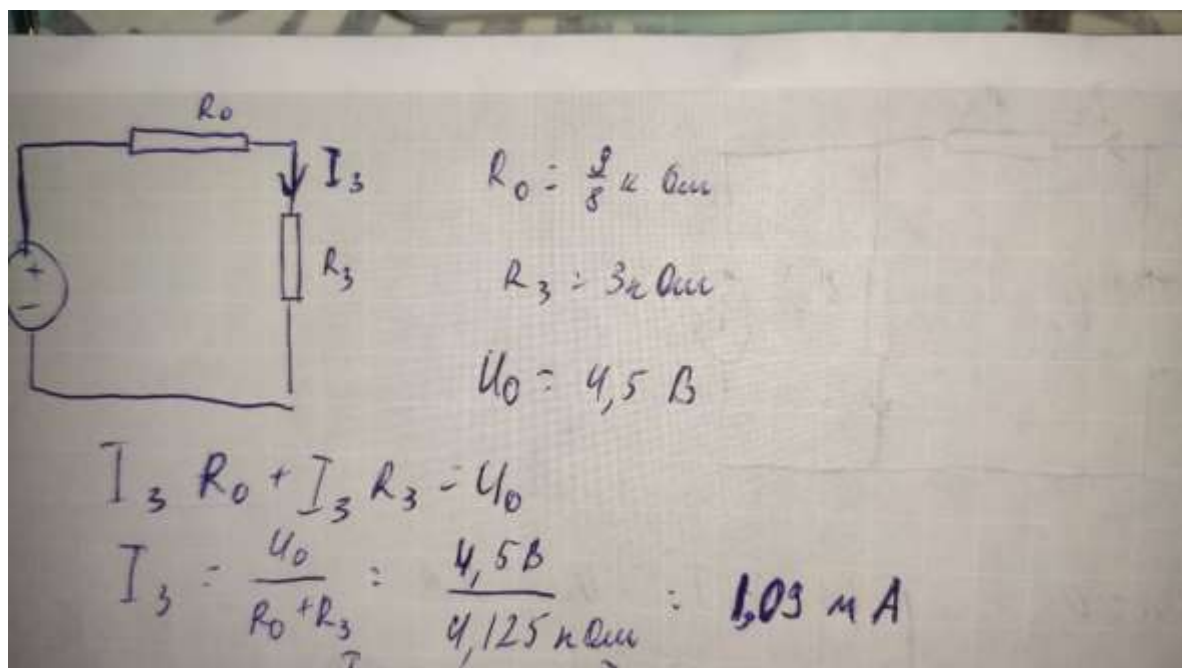 R₀
I₃
R₀ = 9/8 кОм
+
R₃
R₃ = 3кОм
−
U₀ = 4,5 В
I₃ R₀ + I₃ R₃ = U₀
I₃ = U₀/(R₀+R₃) = 4,5В/4,125кОм = 1,09 мА